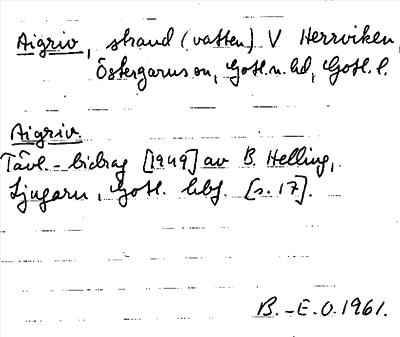 Aigriv, strand (vatten) V Herrviken,
Östergarns sn, Gotl. n. hd, Gotl. l.
Aigriv.
Tävl.-bidrag [1949] av B. Helling,
Ljugarn, Gotl. [s. 17].
B.-E.O. 1961.